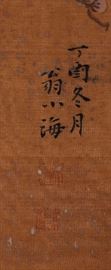 丁酉冬月
翁小海